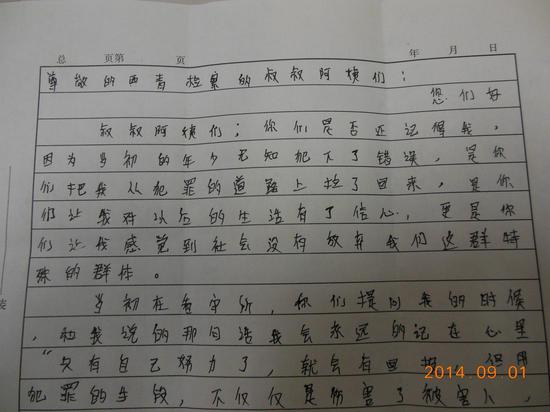 总 页第 页 年 月 日
尊敬的西青检察的叔叔阿姨们：
您们好
叔叔阿姨们；你们是否还记得我，
因为当初的年少无知犯下了错误，是你
们把我从犯罪的道路上拉了回来，是你
们让我对以后的生活有了信心，更是你
们让我感觉到社会没有放弃我们这群特
殊的群体。
当初在看守所，你们提问我的时候
，和我说的那句话我会永远的记在心里
“只有自己努力了，就会有回报，
犯罪的手段，不仅仅是伤害了被害人，
2014.09.01